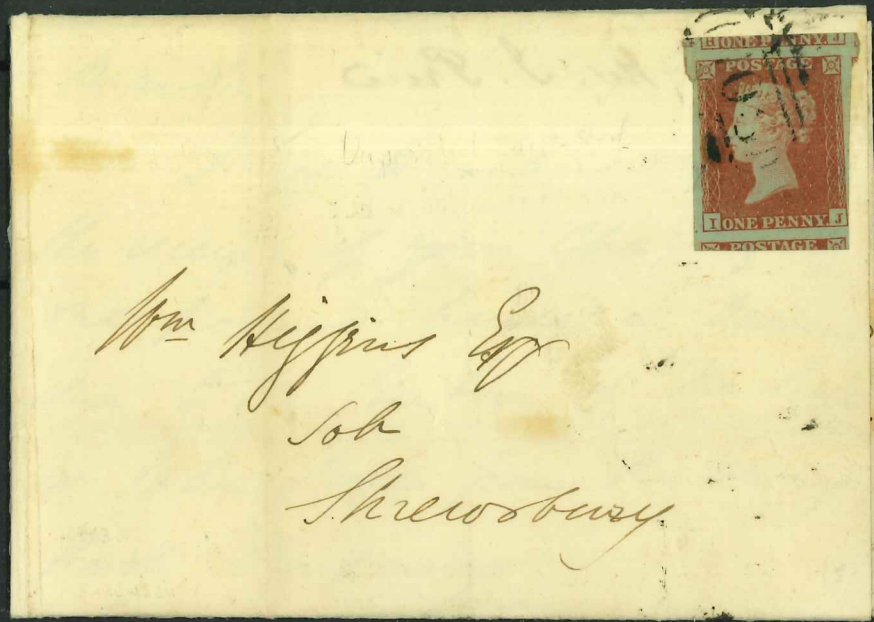 H ONE PENNY J
POSTAGE
I ONE PENNY J
POSTAGE
Wm Higgins Esq
Sol
Shrewsbury